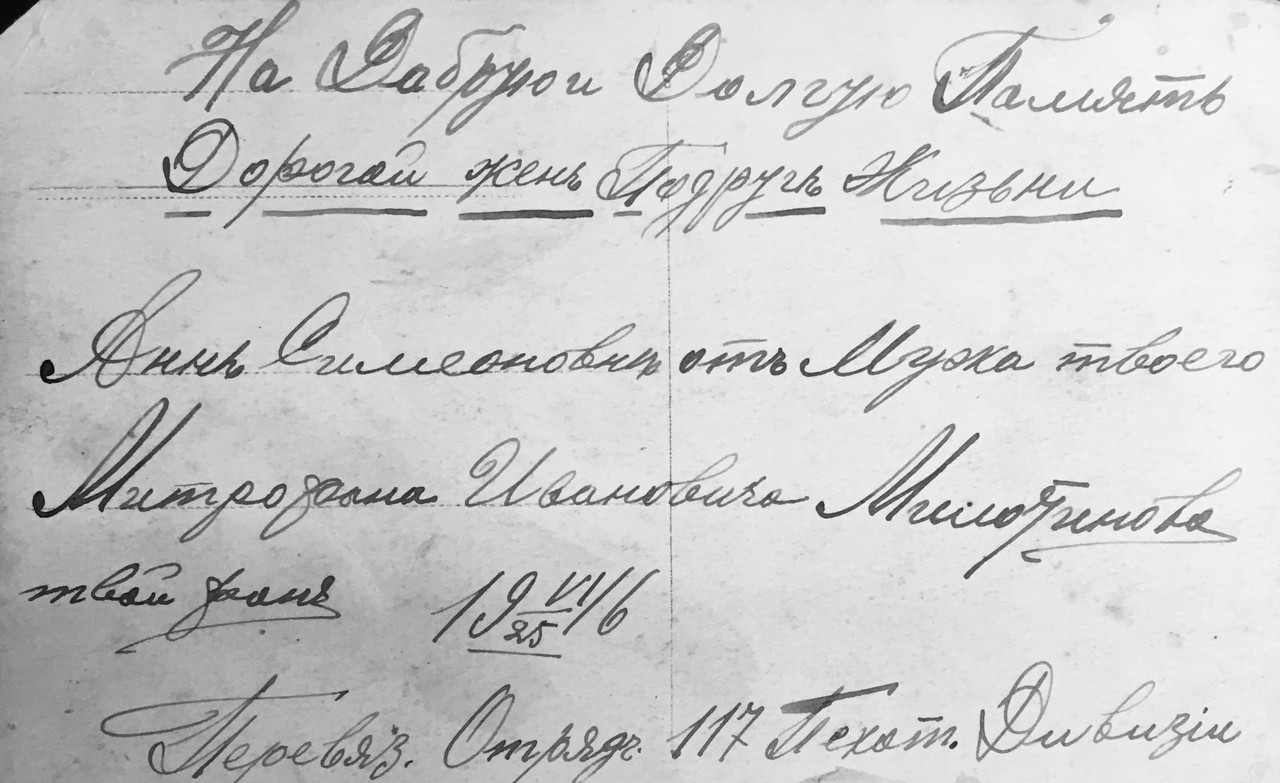 На Дабрую и Долгую Память
Дорогай женѣ Подругѣ Жизьни
Аннѣ Симеоновнѣ отъ Мужа твоего
Митрофана Ивановича
твой фанъ 19 VI/25 16
Перевяз. Отрядъ. 117 Пехот. Дивизіи